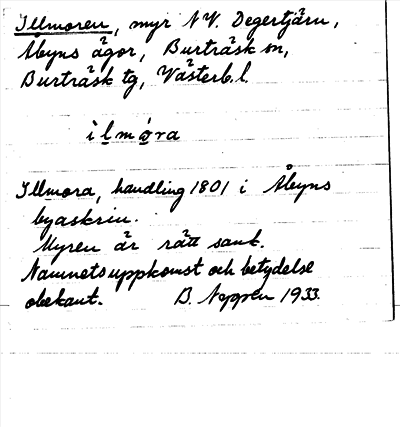 Illmoren, myr NV. Degertjärn,
Åbyns ägor, Burträsk sn,
Burträsk tg, Västerb.l.
ìlmǫ́ra
Illmora, handling 1801 i Åbyns
byaskrin.
Myren är rätt sank.
Namnets uppkomst och betydelse
obekant. B. Nygren 1933.